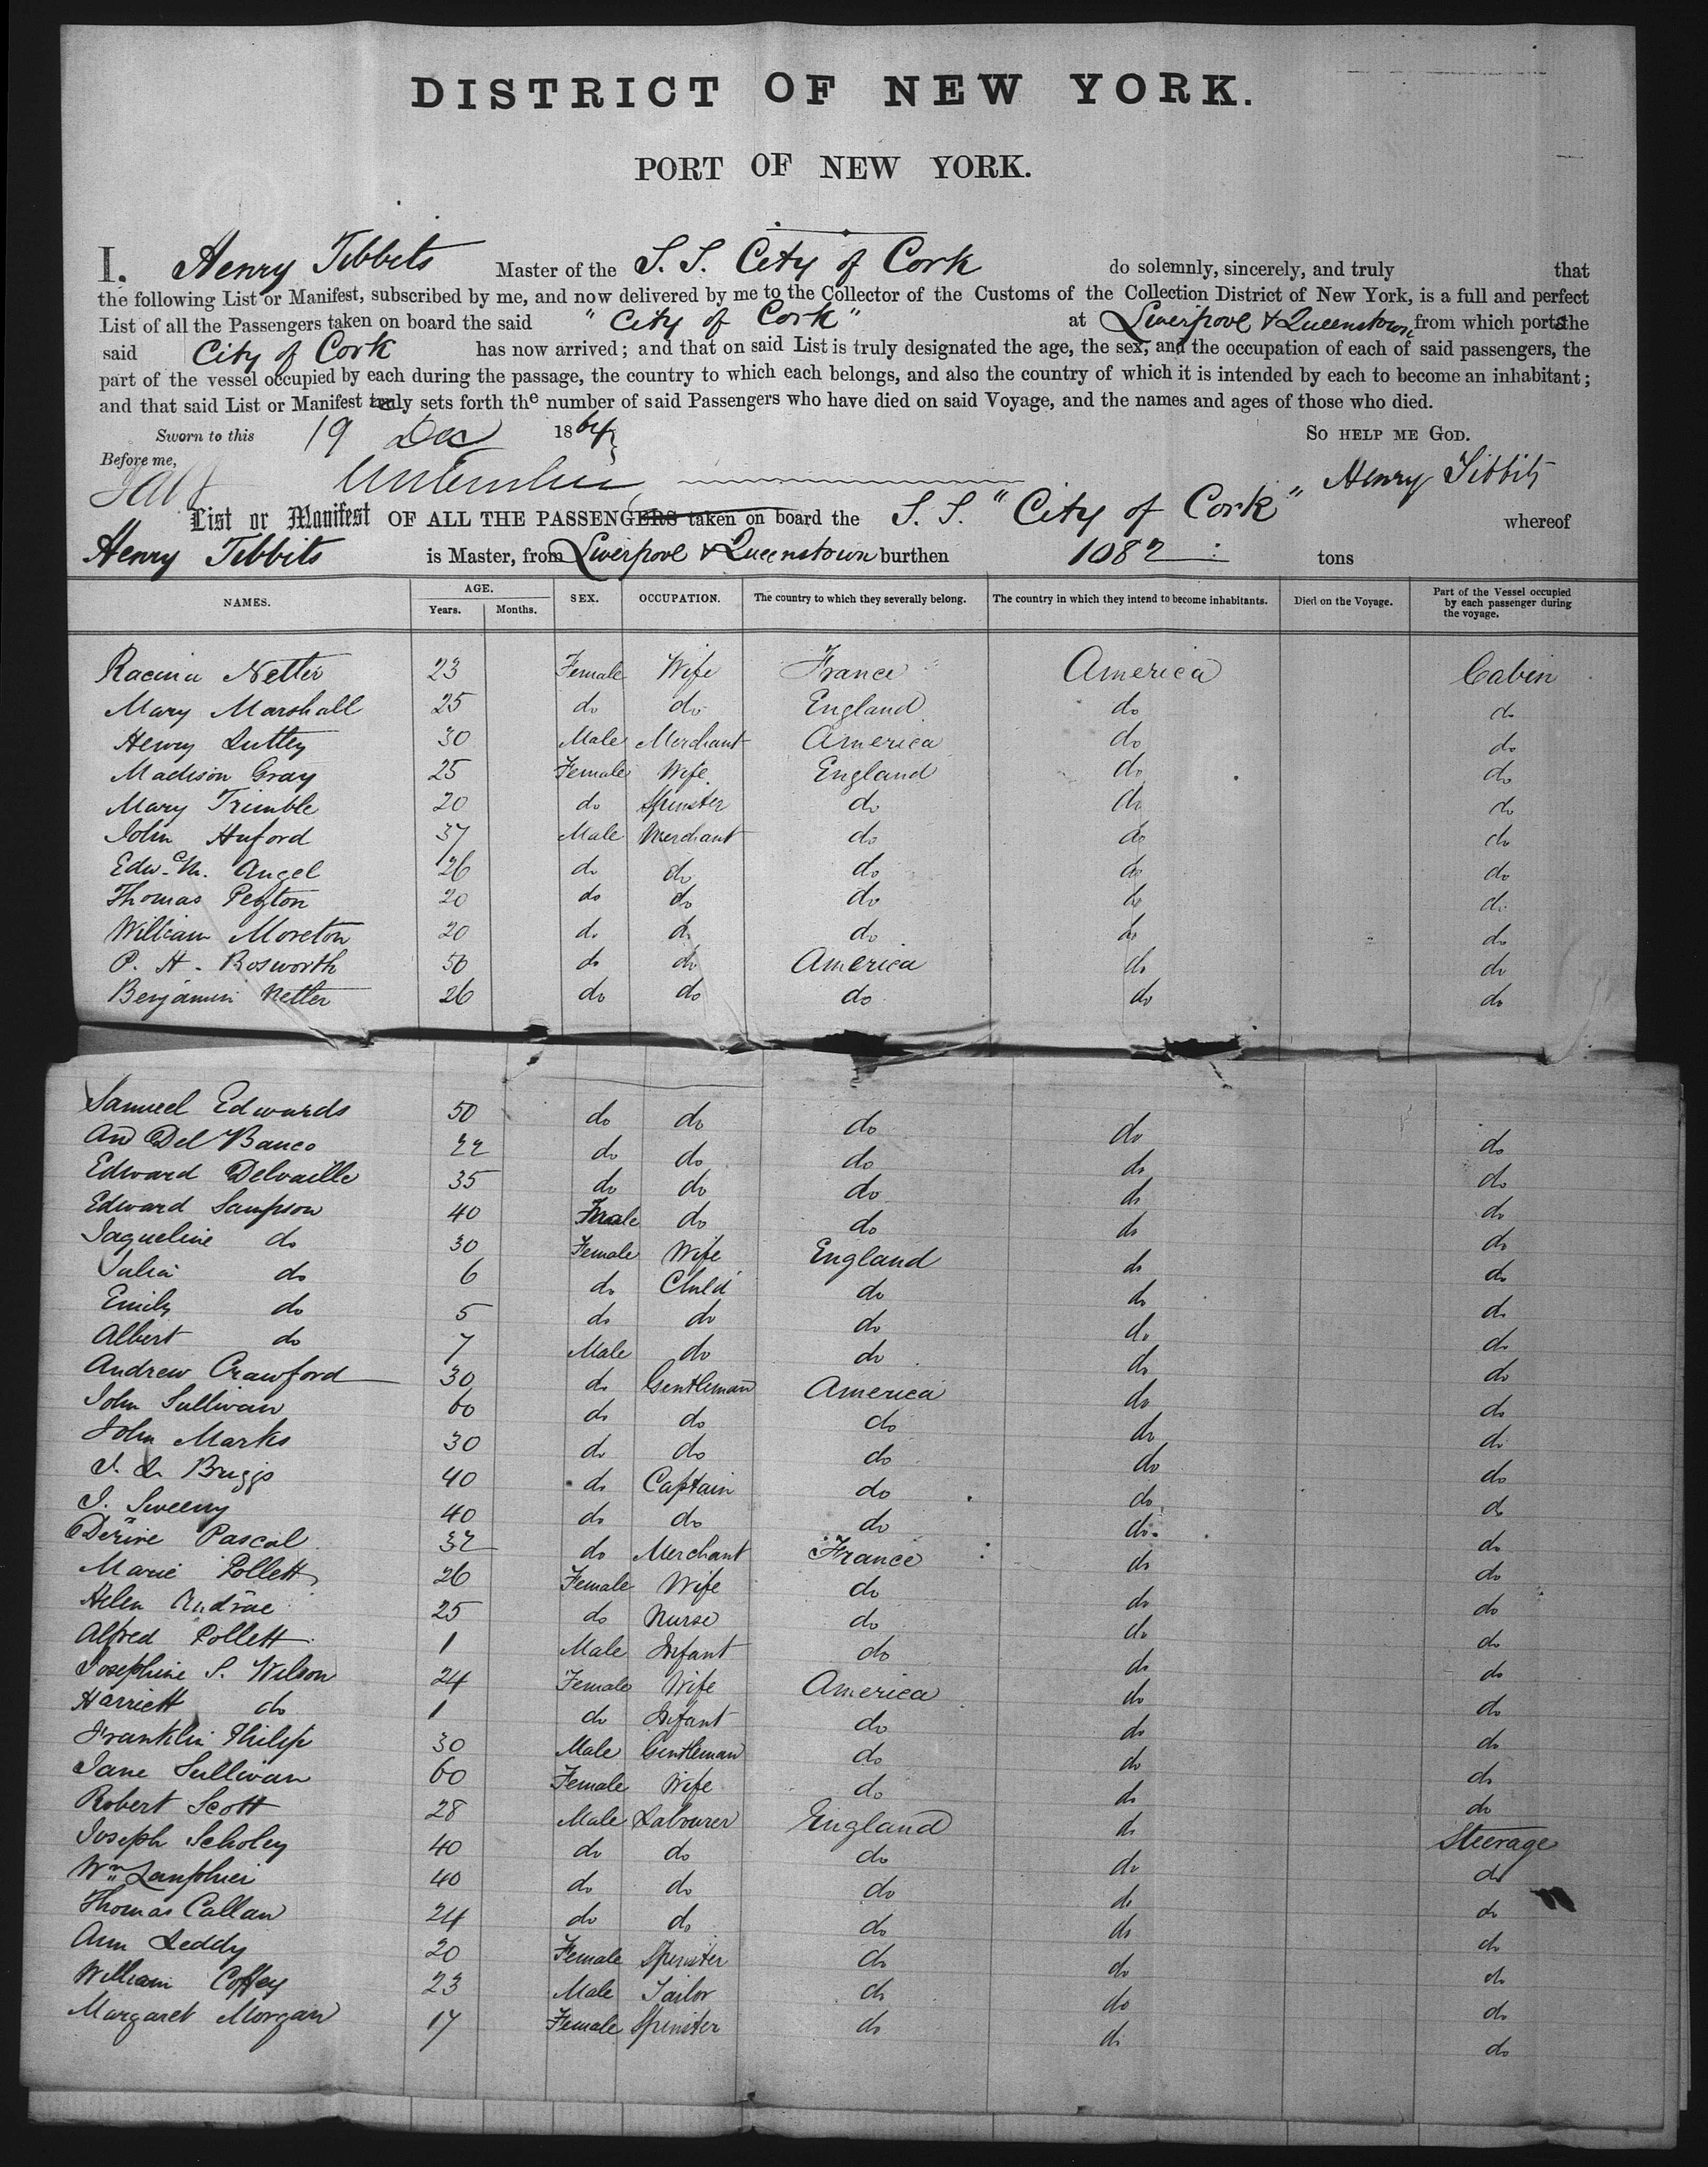 DISTRICT OF NEW YORK.
PORT OF NEW YORK.
I. Henry Tibbits Master of the S. S. City of Cork do solemnly, sincerely, and truly that
the following List or Manifest, subscribed by me, and now delivered by me to the Collector of the Customs of the Collection District of New York, is a full and perfect
List of all the Passengers taken on board the said "City of Cork" at Liverpool & Queenstown from which ports the
said City of Cork has now arrived; and that on said List is truly designated the age, the sex, and the occupation of each of said passengers, the
part of the vessel occupied by each during the passage, the country to which each belongs, and also the country of which it is intended by each to become an inhabitant;
and that said List or Manifest truly sets forth the number of said Passengers who have died on said Voyage, and the names and ages of those who died.
Sworn to this 19 Dec 1864 SO HELP ME GOD.
Before me, Henry Tibbits
List or Manifest OF ALL THE PASSENGERS taken on board the S. S. "City of Cork" whereof
Henry Tibbits is Master, from Liverpool & Queenstown burthen 1082 tons
NAMES. AGE. Years. Months. SEX. OCCUPATION. The country to which they severally belong. The country in which they intend to become inhabitants. Died on the Voyage. Part of the Vessel occupied by each passenger during the voyage.
Netter 23 Female Wife France America Cabin
Mary Marshall 25 do do England do do
Henry Luttey 30 Male Merchant America do do
Madison Gray 25 Female Wife England do do
Mary Trimble 20 do Spinster do do do
John Huford 37 Male Merchant do do do
Edwd M. Angel 26 do do do do do
Thomas Peyton 20 do do do do do
William Moreton 20 do do do do do
P. H. Bosworth 50 do do America do do
Benjamin Netter 26 do do do do do
Samuel Edwards 50 do do do do do
Del Banco 22 do do do do do
Edward Delvaille 35 do do do do do
Edward Sampson 40 do do do do
Jaqueline do 30 Female Wife England do do
Julia do 6 do Child do do do
Emily do 5 do do do do do
Albert do 7 Male do do do do
Andrew Crawford 30 do Gentleman America do do
John Sullivan 60 do do do do do
John Marks 30 do do do do do
Briggs 40 do Captain do do do
J. Sweeny 40 do do do do do
Pascal 32 do Merchant France do do
Marie Pollett 26 Female Wife do do do
Helen Andrae 25 do Nurse do do do
Alfred Pollett 1 Male Infant do do do
Josephine S. Wilson 24 Female Wife America do do
Harriett do 1 do Infant do do do
Franklin Philip 30 Male Gentleman do do do
Jane Sullivan 60 Female Wife do do do
Robert Scott 28 Male Labourer England do Steerage
Joseph Scholey 40 do do do do do
Wm Lanphier 40 do do do do do
Thomas Callan 24 do do do do do
Ann Leddy 20 Female Spinster do do do
William Coffey 23 Male Tailor do do do
Margaret Morgan 17 Female Spinster do do do